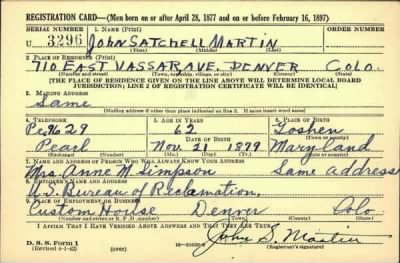 REGISTRATION CARD—(Men born on or after April 28, 1877 and on or before February 16, 1897)
SERIAL NUMBER 1. NAME (Print) ORDER NUMBER
U 3296 JOHN SATCHELL MARTIN
(First) (Middle) (Last)
2. PLACE OF RESIDENCE (Print)
710 EAST VASSAR AVE. DENVER COLO.
(Number and street) (Town, township, village, or city) (County) (State)
[THE PLACE OF RESIDENCE GIVEN ON THE LINE ABOVE WILL DETERMINE LOCAL BOARD
JURISDICTION; LINE 2 OF REGISTRATION CERTIFICATE WILL BE IDENTICAL]
3. MAILING ADDRESS
Same
(Mailing address if other than place indicated on line 2. If same insert word same)
4. TELEPHONE 5. AGE IN YEARS 6. PLACE OF BIRTH
Pe. 9629 62 Goshen
DATE OF BIRTH (Town or county)
Pearl Nov. 21 1879 Maryland
(Exchange) (Number) (Mo.) (Day) (Yr.) (State or country)
7. NAME AND ADDRESS OF PERSON WHO WILL ALWAYS KNOW YOUR ADDRESS
Mrs. Anne M. Simpson Same address
8. EMPLOYER'S NAME AND ADDRESS
U.S. Bureau of Reclamation,
9. PLACE OF EMPLOYMENT OR BUSINESS
Custom House Denver Colo
(Number and street or R. F. D. number) (Town) (County) (State)
I AFFIRM THAT I HAVE VERIFIED ABOVE ANSWERS AND THAT THEY ARE TRUE.
John S. Martin
D. S. S. Form 1
(Revised 4-1-42) (over) (Registrant's signature)